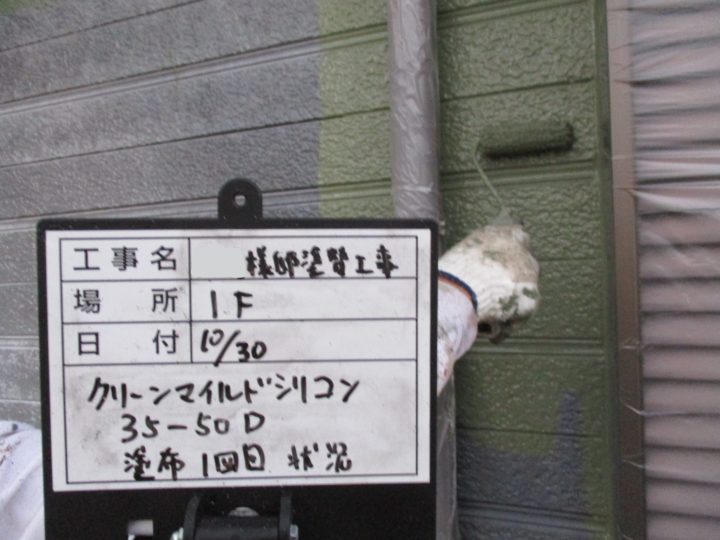 工事名 様邸塗替工事
場所 1F
日付 10/30
クリーンマイルドシリコン
35-50D
塗布1回目 状況